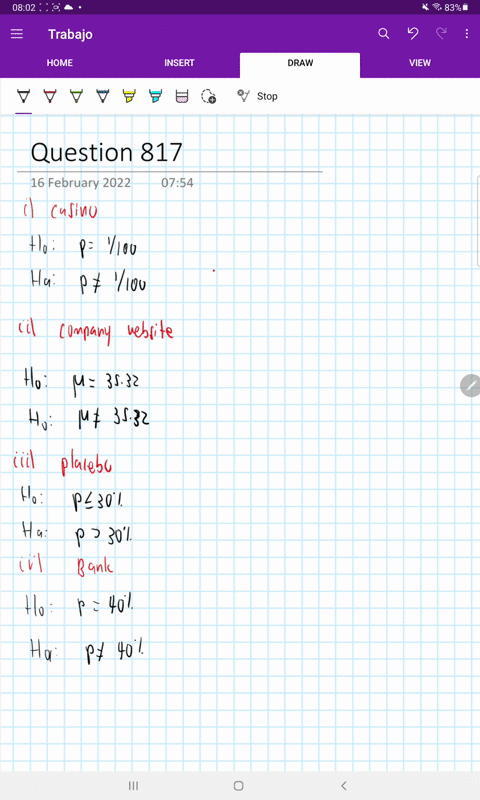 08:02 83%
Trabajo
HOME INSERT DRAW VIEW
Stop
Question 817
16 February 2022 07:54
i) casino
H₀: p = 1/100
Ha: p ≠ 1/100
ii) company website
H₀: μ = 35.32
H₀: μ ≠ 35.32
iii) placebo
H₀: p ≤ 30%
Ha: p > 30%
iv) Bank
H₀: p = 40%
Ha: p ≠ 40%